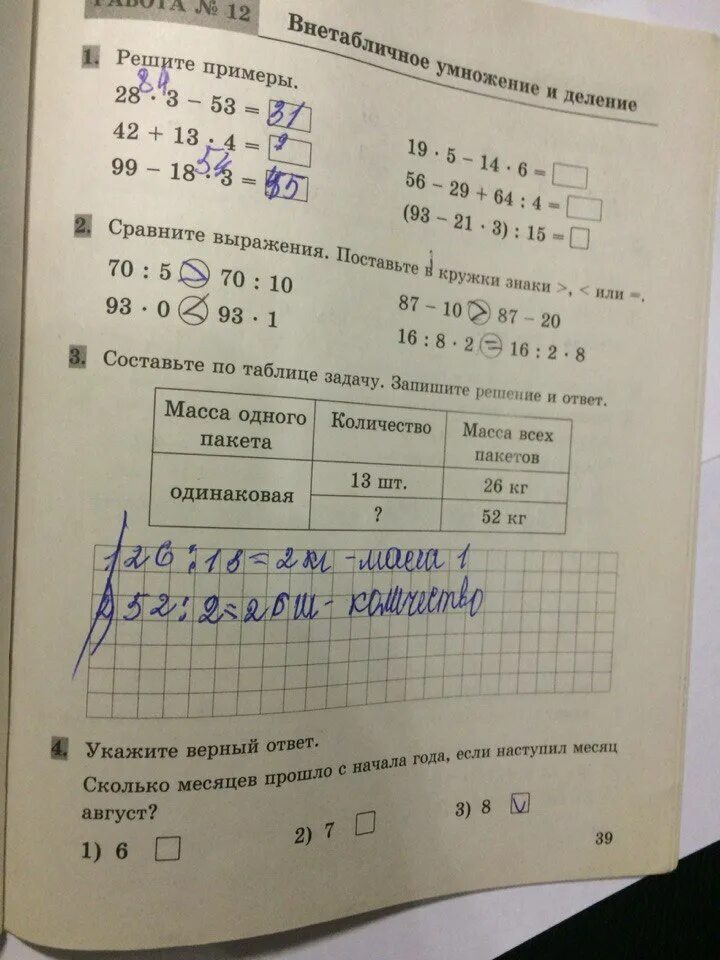 РАБОТА № 12
Внетабличное умножение и деление
1. Решите примеры.
84
28 · 3 – 53 = 31
42 + 13 · 4 =
54
99 – 18 · 3 = 45
19 · 5 – 14 · 6 =
56 – 29 + 64 : 4 =
(93 – 21 · 3) : 15 =
2. Сравните выражения. Поставьте в кружки знаки >, < или =.
70 : 5 > 70 : 10
93 · 0 < 93 · 1
87 – 10 > 87 – 20
16 : 8 · 2 = 16 : 2 · 8
3. Составьте по таблице задачу. Запишите решение и ответ.
Масса одного пакета Количество Масса всех пакетов
одинаковая 13 шт. 26 кг
? 52 кг
1) 26 : 13 = 2 кг - масса 1
2) 52 : 2 = 26 ш - количество
4. Укажите верный ответ.
Сколько месяцев прошло с начала года, если наступил месяц
август?
1) 6
2) 7
3) 8 v
39